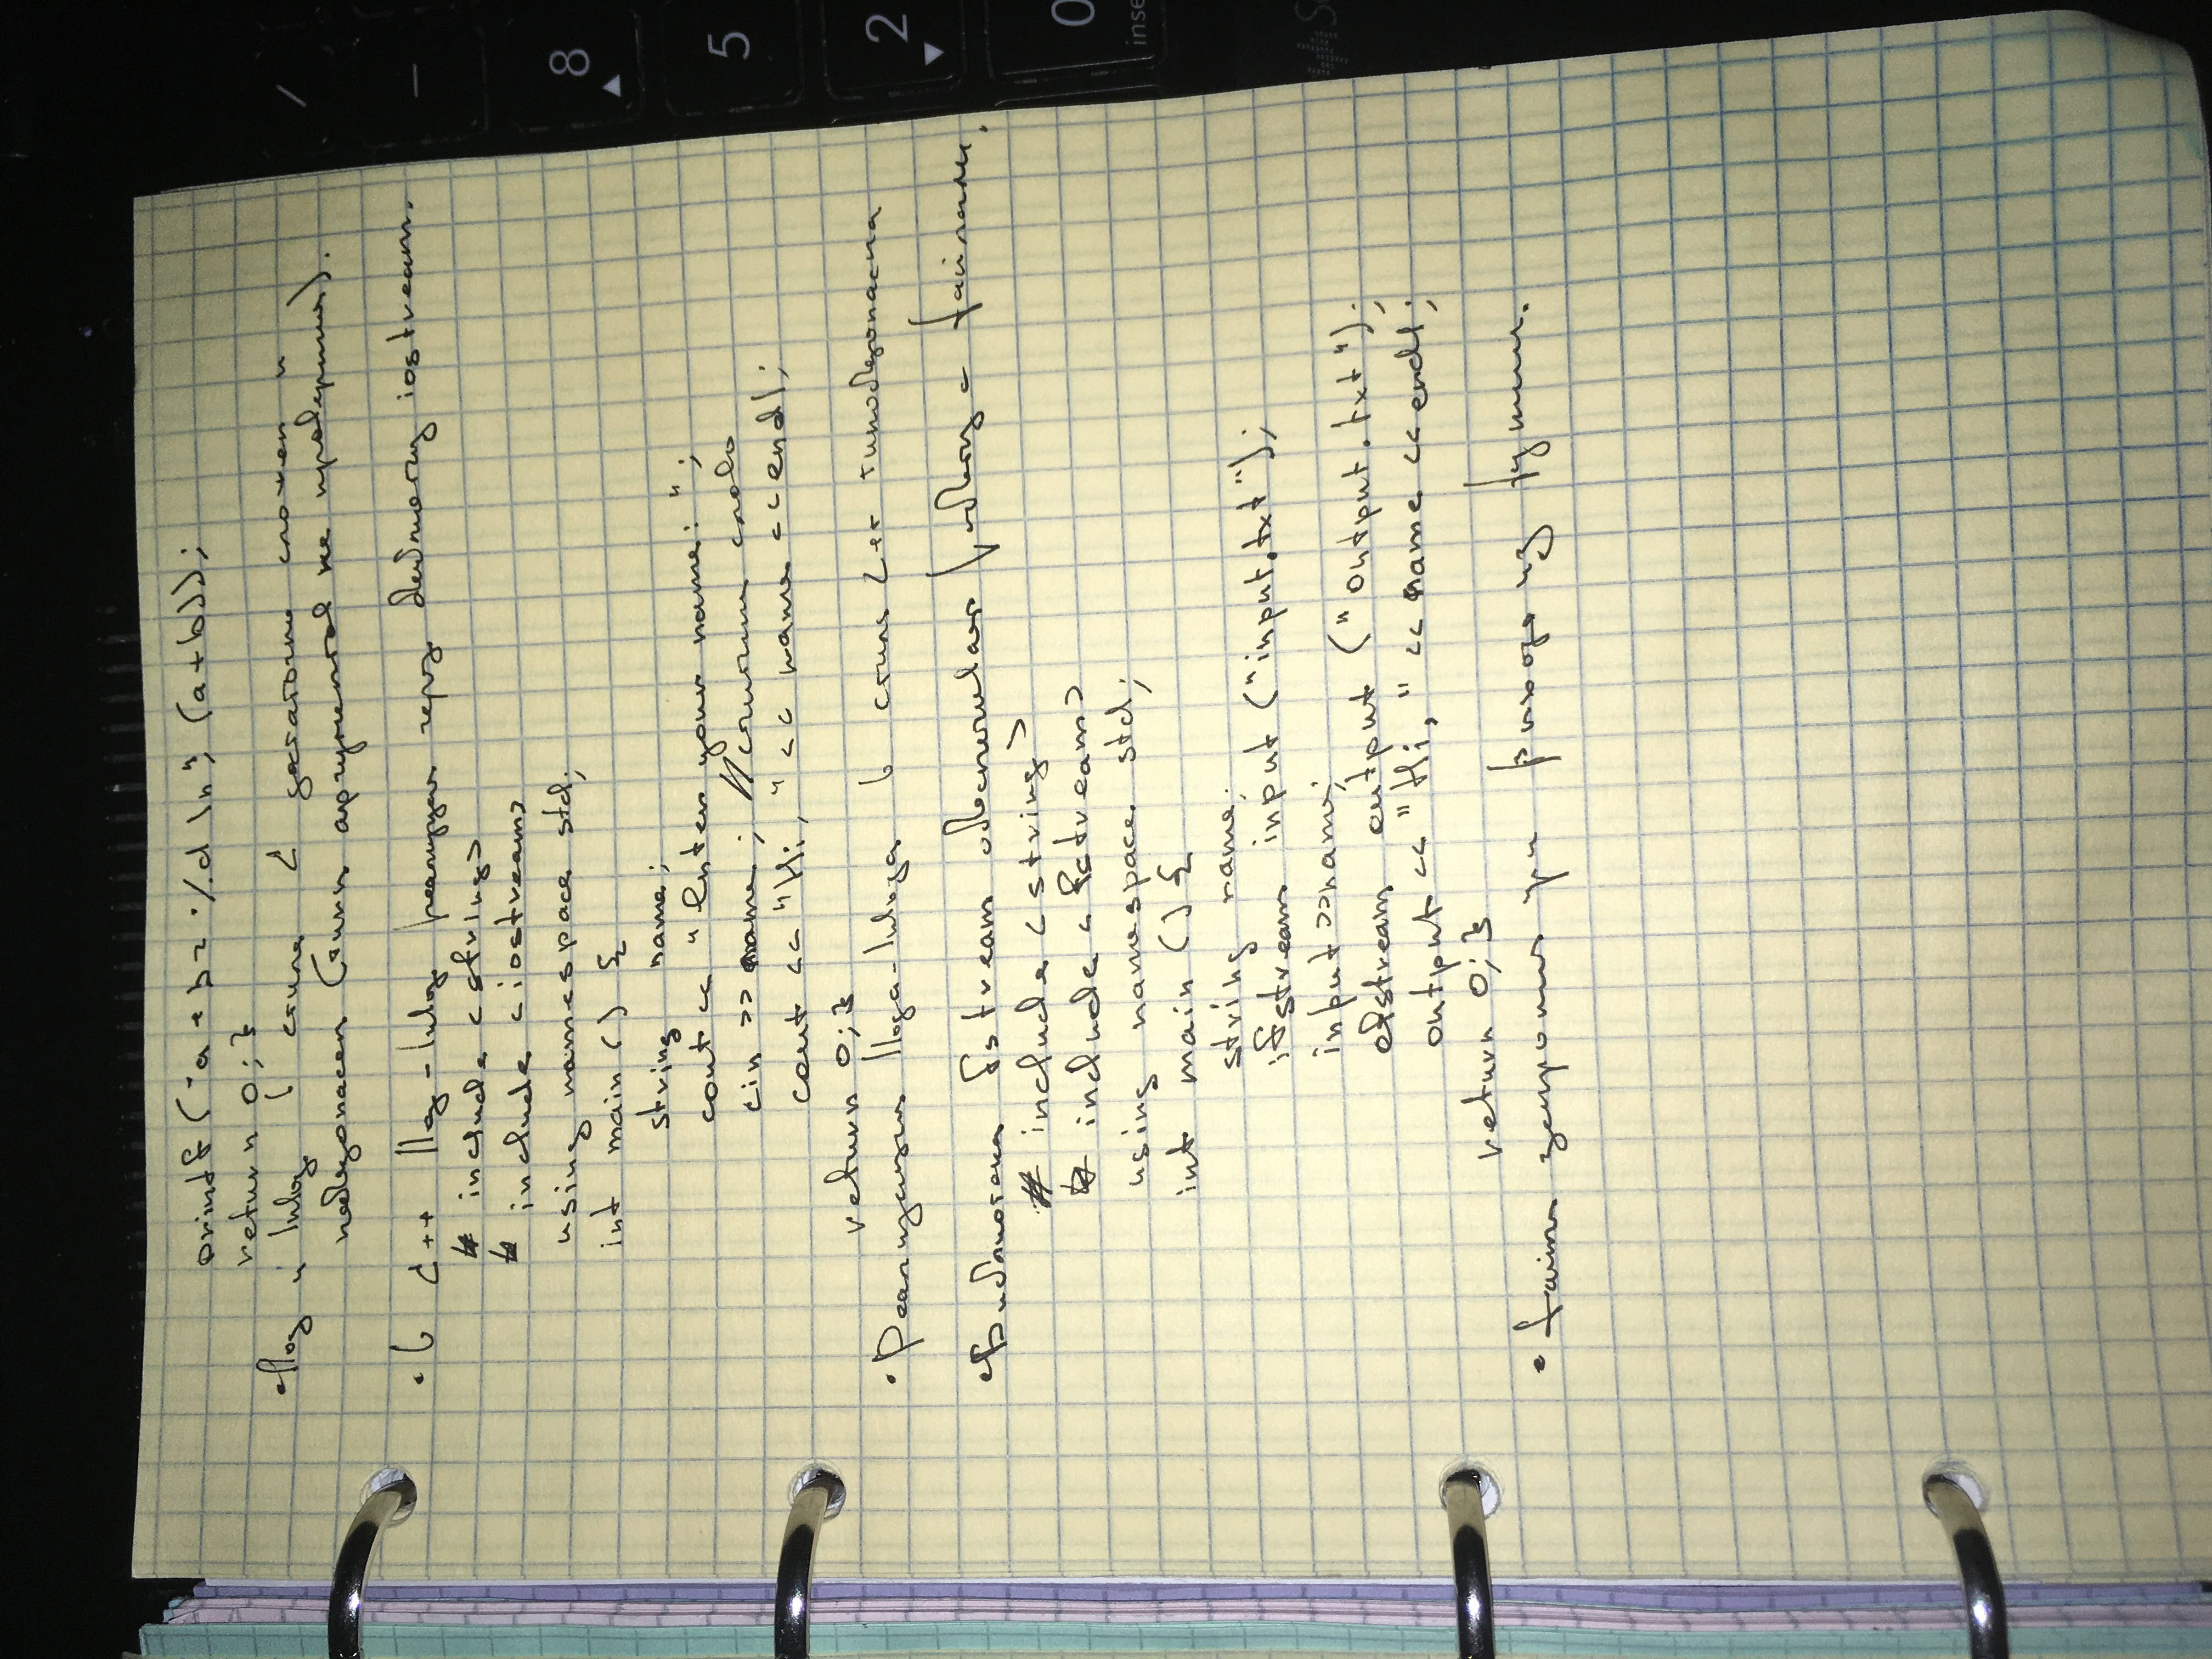 printf ("a + b = %d \n", (a+b));
return 0; }
в стиле C достаточно сложен и
небезопасен (типы аргументов не проверяются).
• В C++ через библиотеку iostream.
# include <string>
# include <iostream>
using namespace std;
int main () {
string name;
cout << "Enter your name: ";
cin >> name; // считали слово
cout << "Hi, " << name << endl;
return 0; }
• Реализация в стиле C++ типобезопасна
• Библиотека fstream обеспечивает работу с файлами.
# include <string>
# include <fstream>
using namespace std;
int main () {
string name;
ifstream input ("input.txt");
input >> name;
ofstream output ("output.txt");
output << "Hi, " << name << endl;
return 0; }
• Файлы из функции.
/
–
8
5
2
0
inse